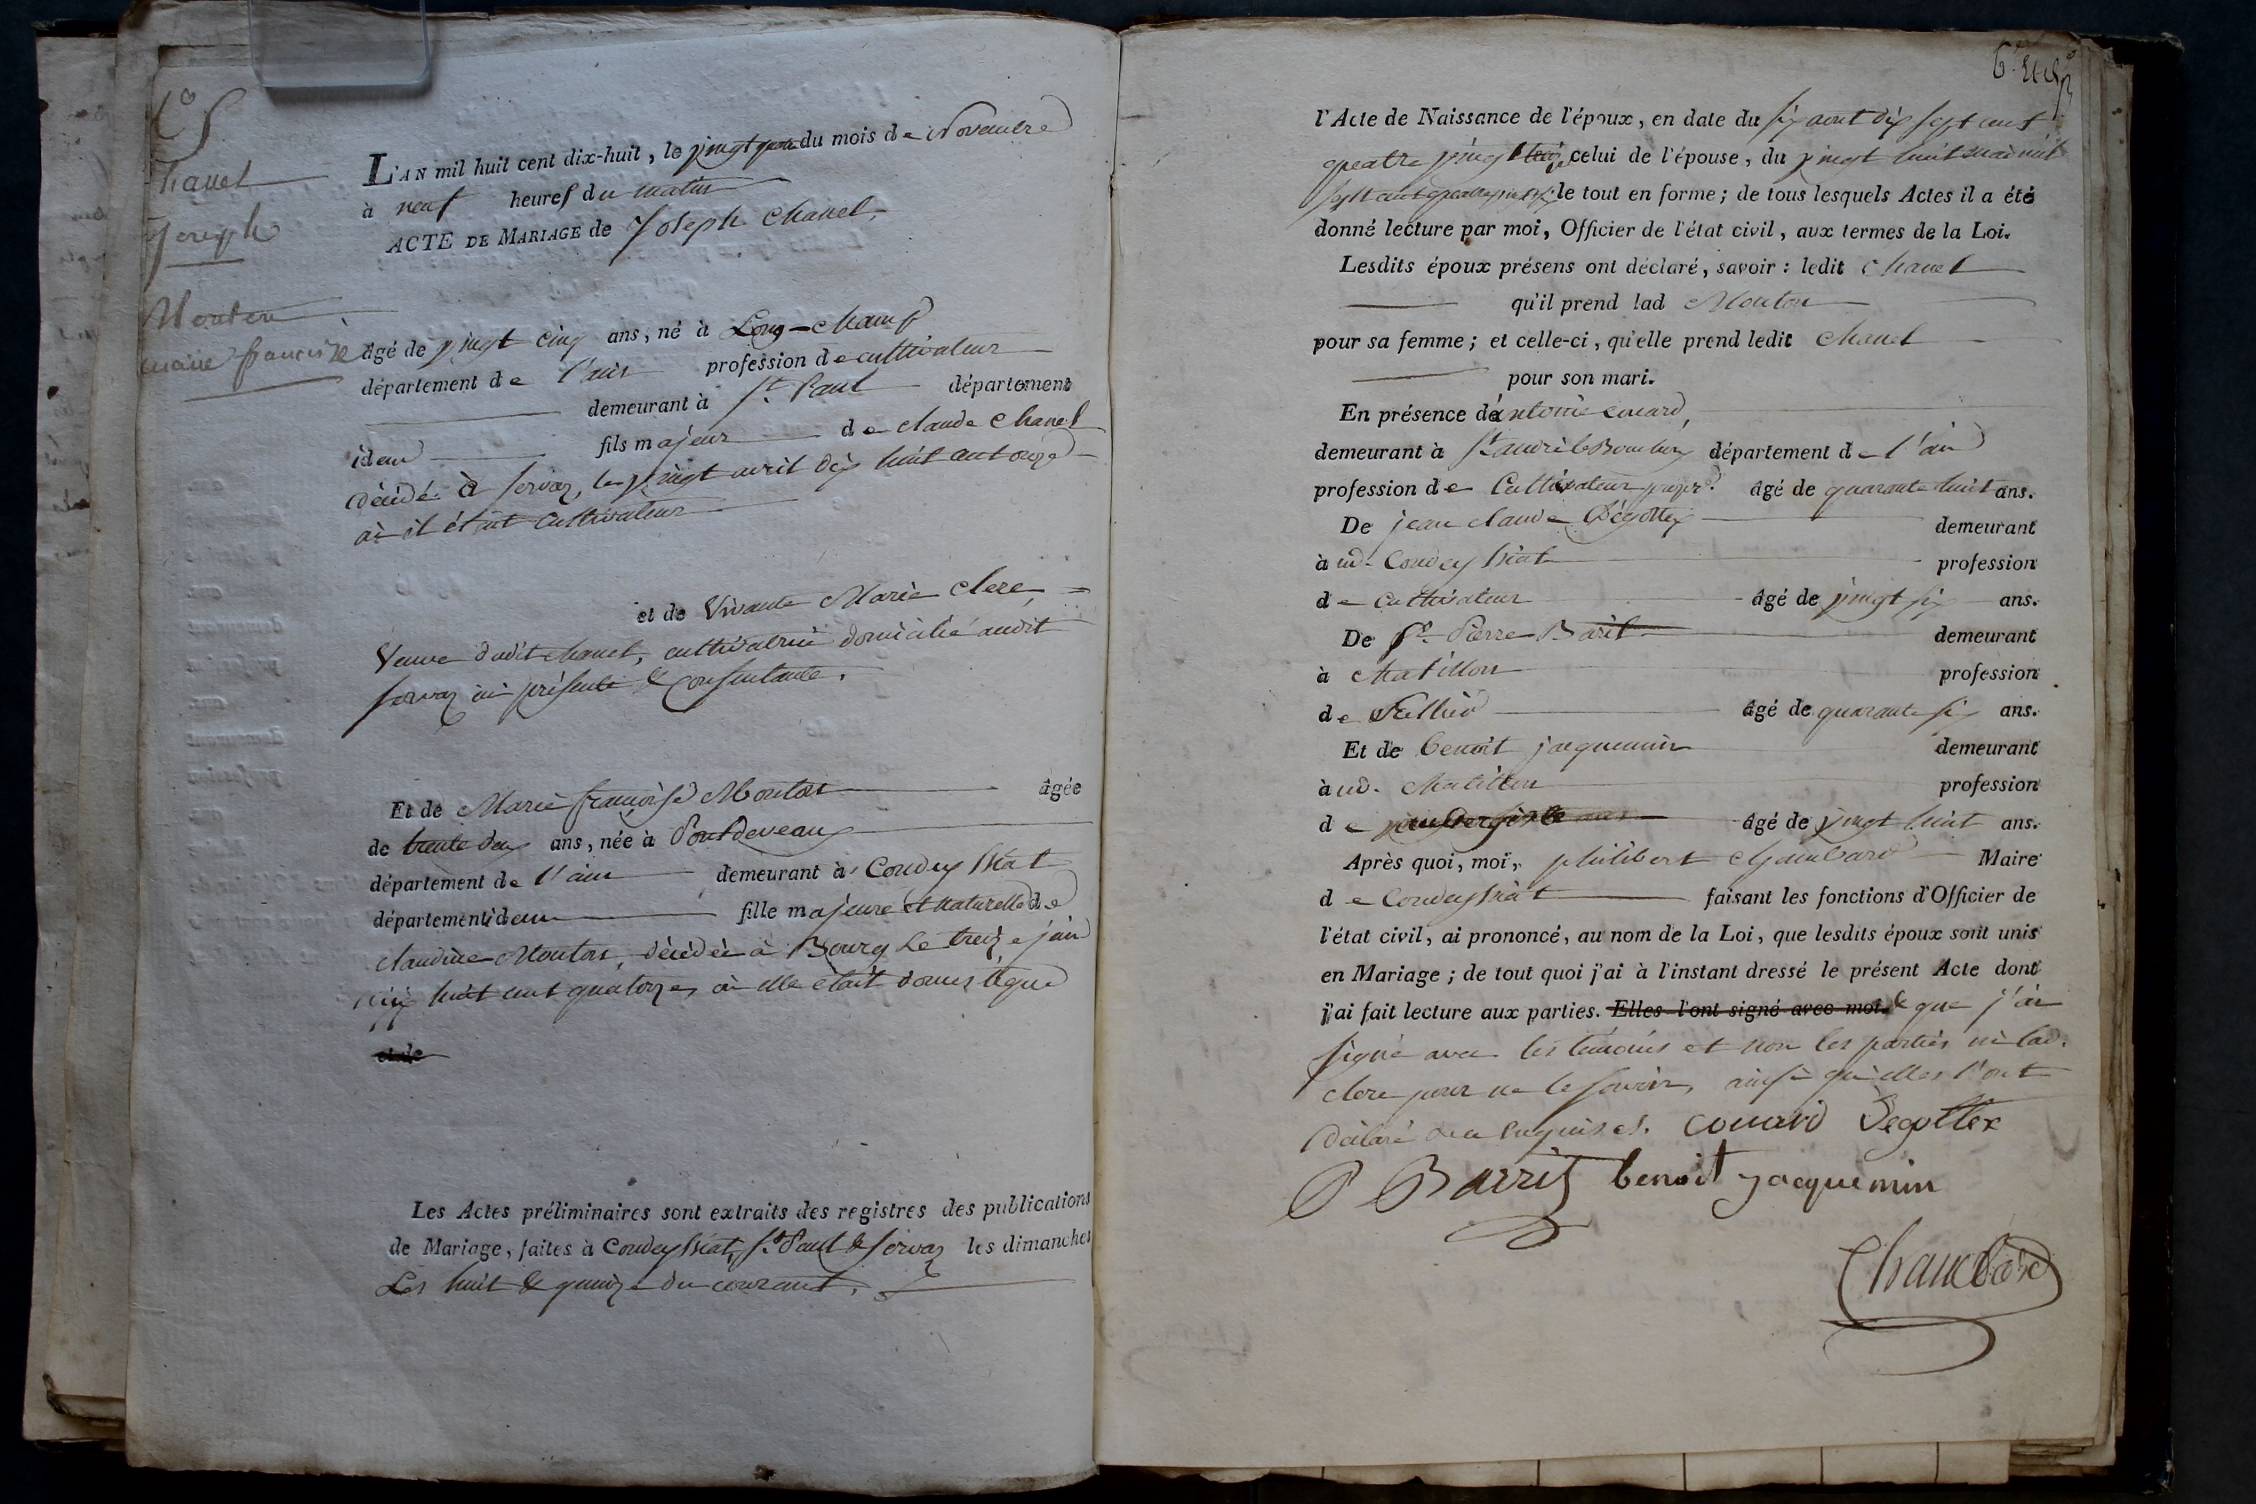 Chanel
Joseph
Mouton
marie françoise
L'AN mil huit cent dix-huit, le vingt du mois de Novembre
à neuf heures du matin
ACTE DE MARIAGE de Joseph Chanel,
âgé de vingt cinq ans, né à Long-champ
département de l'ain profession de cultivateur
demeurant à St. Paul département
idem fils majeur de claude Chanel
décédé à Servaz, le vingt avril dix huit cent onze
où il était cultivateur
et de Vivante Marie Clere,
Veuve dudit chanel, cultivatrice domiciliée audit
Servaz ici présente & consentante.
Et de Marie françoise Mouton âgée
de trente deux ans, née à Pontdevaux
département de l'ain demeurant à Condeyssiat
département idem fille majeure et naturelle de
claudine Mouton, décédée à Bourg le treize juin
dix huit cent quatorze, où elle était domestique
et de
Les Actes préliminaires sont extraits des registres des publications
de Mariage, faites à Condeyssiat, St. Paul & Servaz les dimanches
Les huit & quinze du courant.
l'Acte de Naissance de l'époux, en date du six aout dix sept cent
quatre vingt celui de l'épouse, du vingt huit mai mil
sept cent quatre vingt six; le tout en forme; de tous lesquels Actes il a été
donné lecture par moi, Officier de l'état civil, aux termes de la Loi.
Lesdits époux présens ont déclaré, savoir : ledit Chanel
qu'il prend lad Mouton
pour sa femme; et celle-ci, qu'elle prend ledit Chanel
pour son mari.
En présence d'antoine Couard,
demeurant à St. andré le Bouchoux département de l'ain
profession de Cultivateur propre. âgé de quarante huit ans.
De jean claude Dégottex demeurant
à ud. Condeyssiat profession
de Cultivateur âgé de vingt six ans.
De Sr. Pierre Barit demeurant
à Chatillon profession
de Sellier âgé de quarante six ans.
Et de benoit jacquemin demeurant
à ud. Chatillon profession
de âgé de vingt huit ans.
Après quoi, moi, philibert Chambard Maire
de Condeyssiat faisant les fonctions d'Officier de
l'état civil, ai prononcé, au nom de la Loi, que lesdits époux sont unis
en Mariage; de tout quoi j'ai à l'instant dressé le présent Acte dont
j'ai fait lecture aux parties. Elles l'ont signé avec moi. & que j'ai
signé avec les témoins et non les parties ni lad.
clere pour ne le savoir, ainsi qu'elles l'ont
déclaré de ce enquises. couard Degottex
P Barrit benoit jacquemin
Chambard